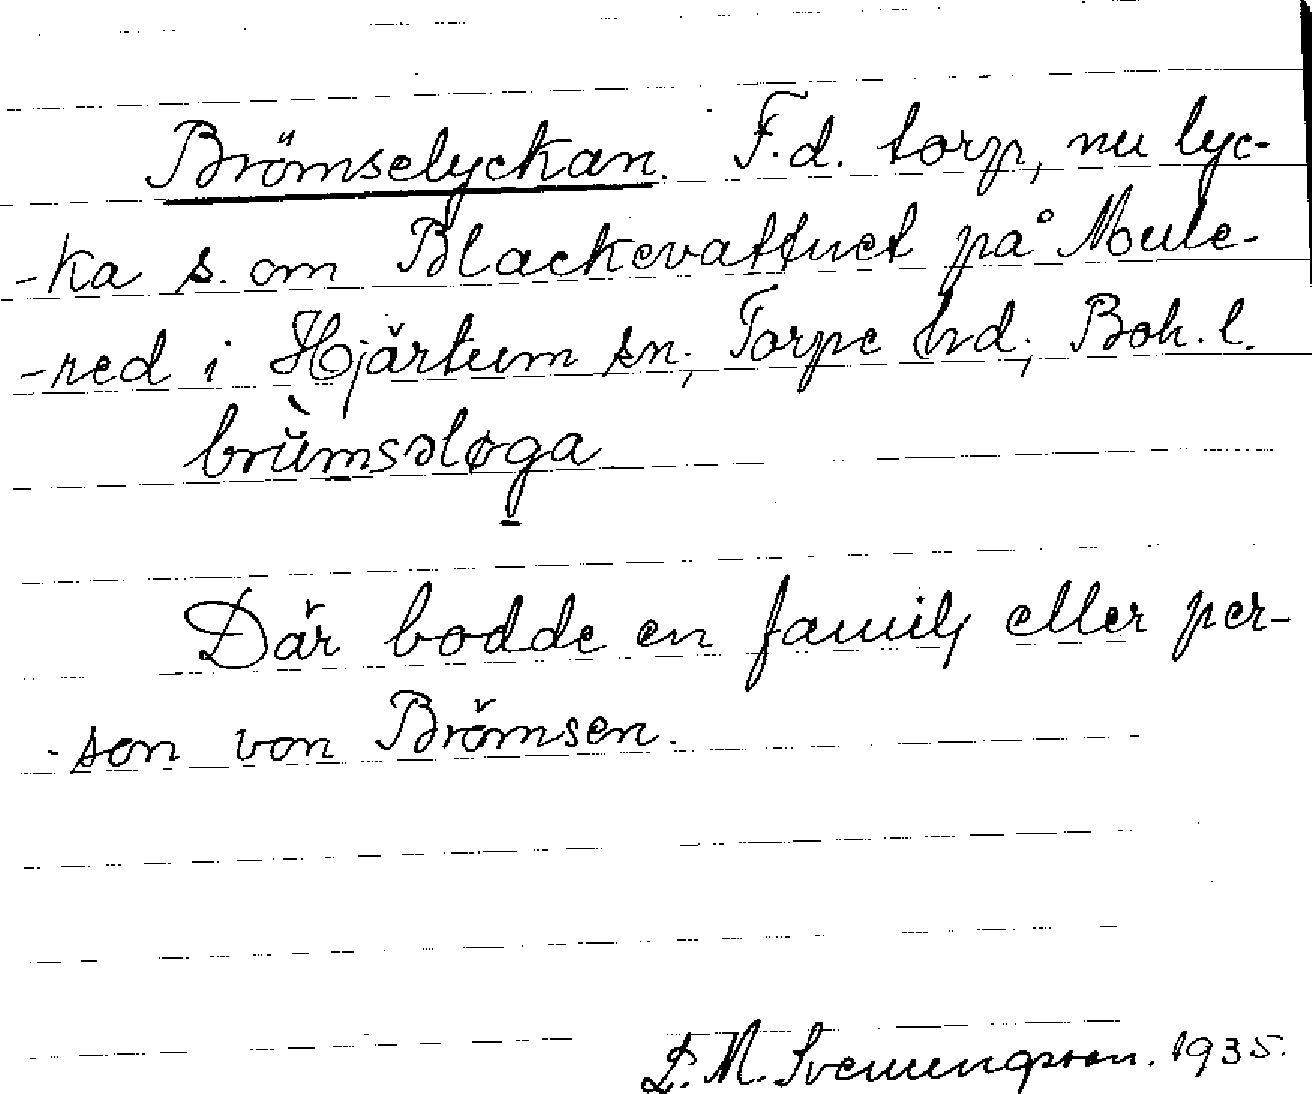 Brömselyckan. F.d. torp, nu lyc-
-ka s. om Blackevattnet på Mule-
-red i Hjärtum sn; Torpe hd; Boh. l.
brùmsəløga
Där bodde en familj eller per-
-son von Brömsen.
D. M. Svenungsson. 1935.